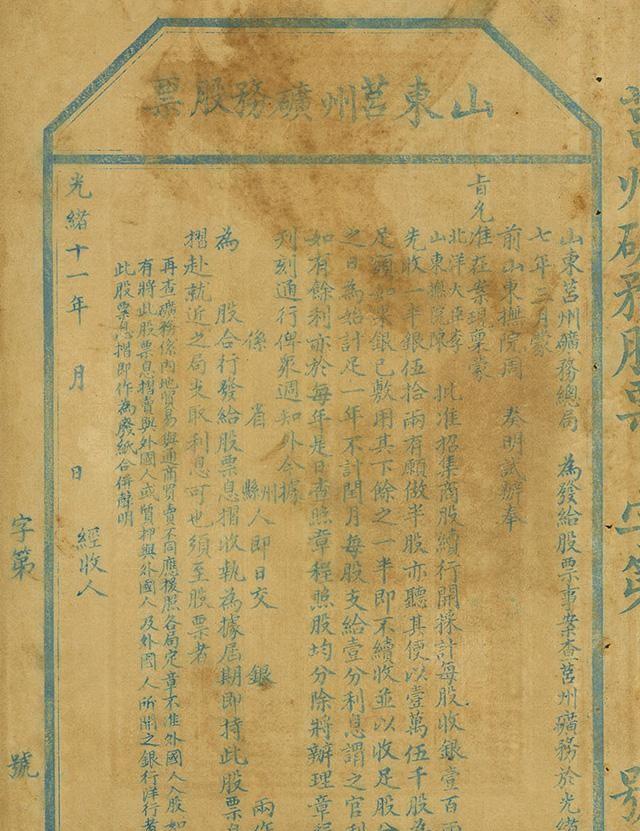 山東莒州礦務股票
山東莒州礦務總局　為發給股票事案查莒州礦務於光緒
七年三月蒙
前山東撫院周　奏明試辦奉
旨允准在案現稟蒙
北洋大臣李
山東撫院陳　批准招集商股續行開採計每股收銀壹百兩
先收一半銀伍拾兩有願做半股亦聽其便以壹萬伍千股為
足額如果銀已敷用其下餘之一半即不續收並以收足股分
之日為始計足一年不計閏月每股支給壹分利息謂之官利
如有餘利亦於每年是日查照章程照股均分除將辦理章程
刊刻通行俾衆週知外今據
係　省　州縣　人即日交　銀　兩作
為　股合行發給股票息摺收執為據屆期即持此股票息
摺赴就近之局支取利息可也須至股票者
再查礦務係內地貿易與通商買賣不同應援照各局定章不准外國人入股如
有將此股票息摺賣與外國人或質押與外國人及外國人所開之銀行洋行者
此股票息摺即作為廢紙合併聲明
光緒十一年　月　日　經收人
字第　號
莒州礦務股票　字第　號